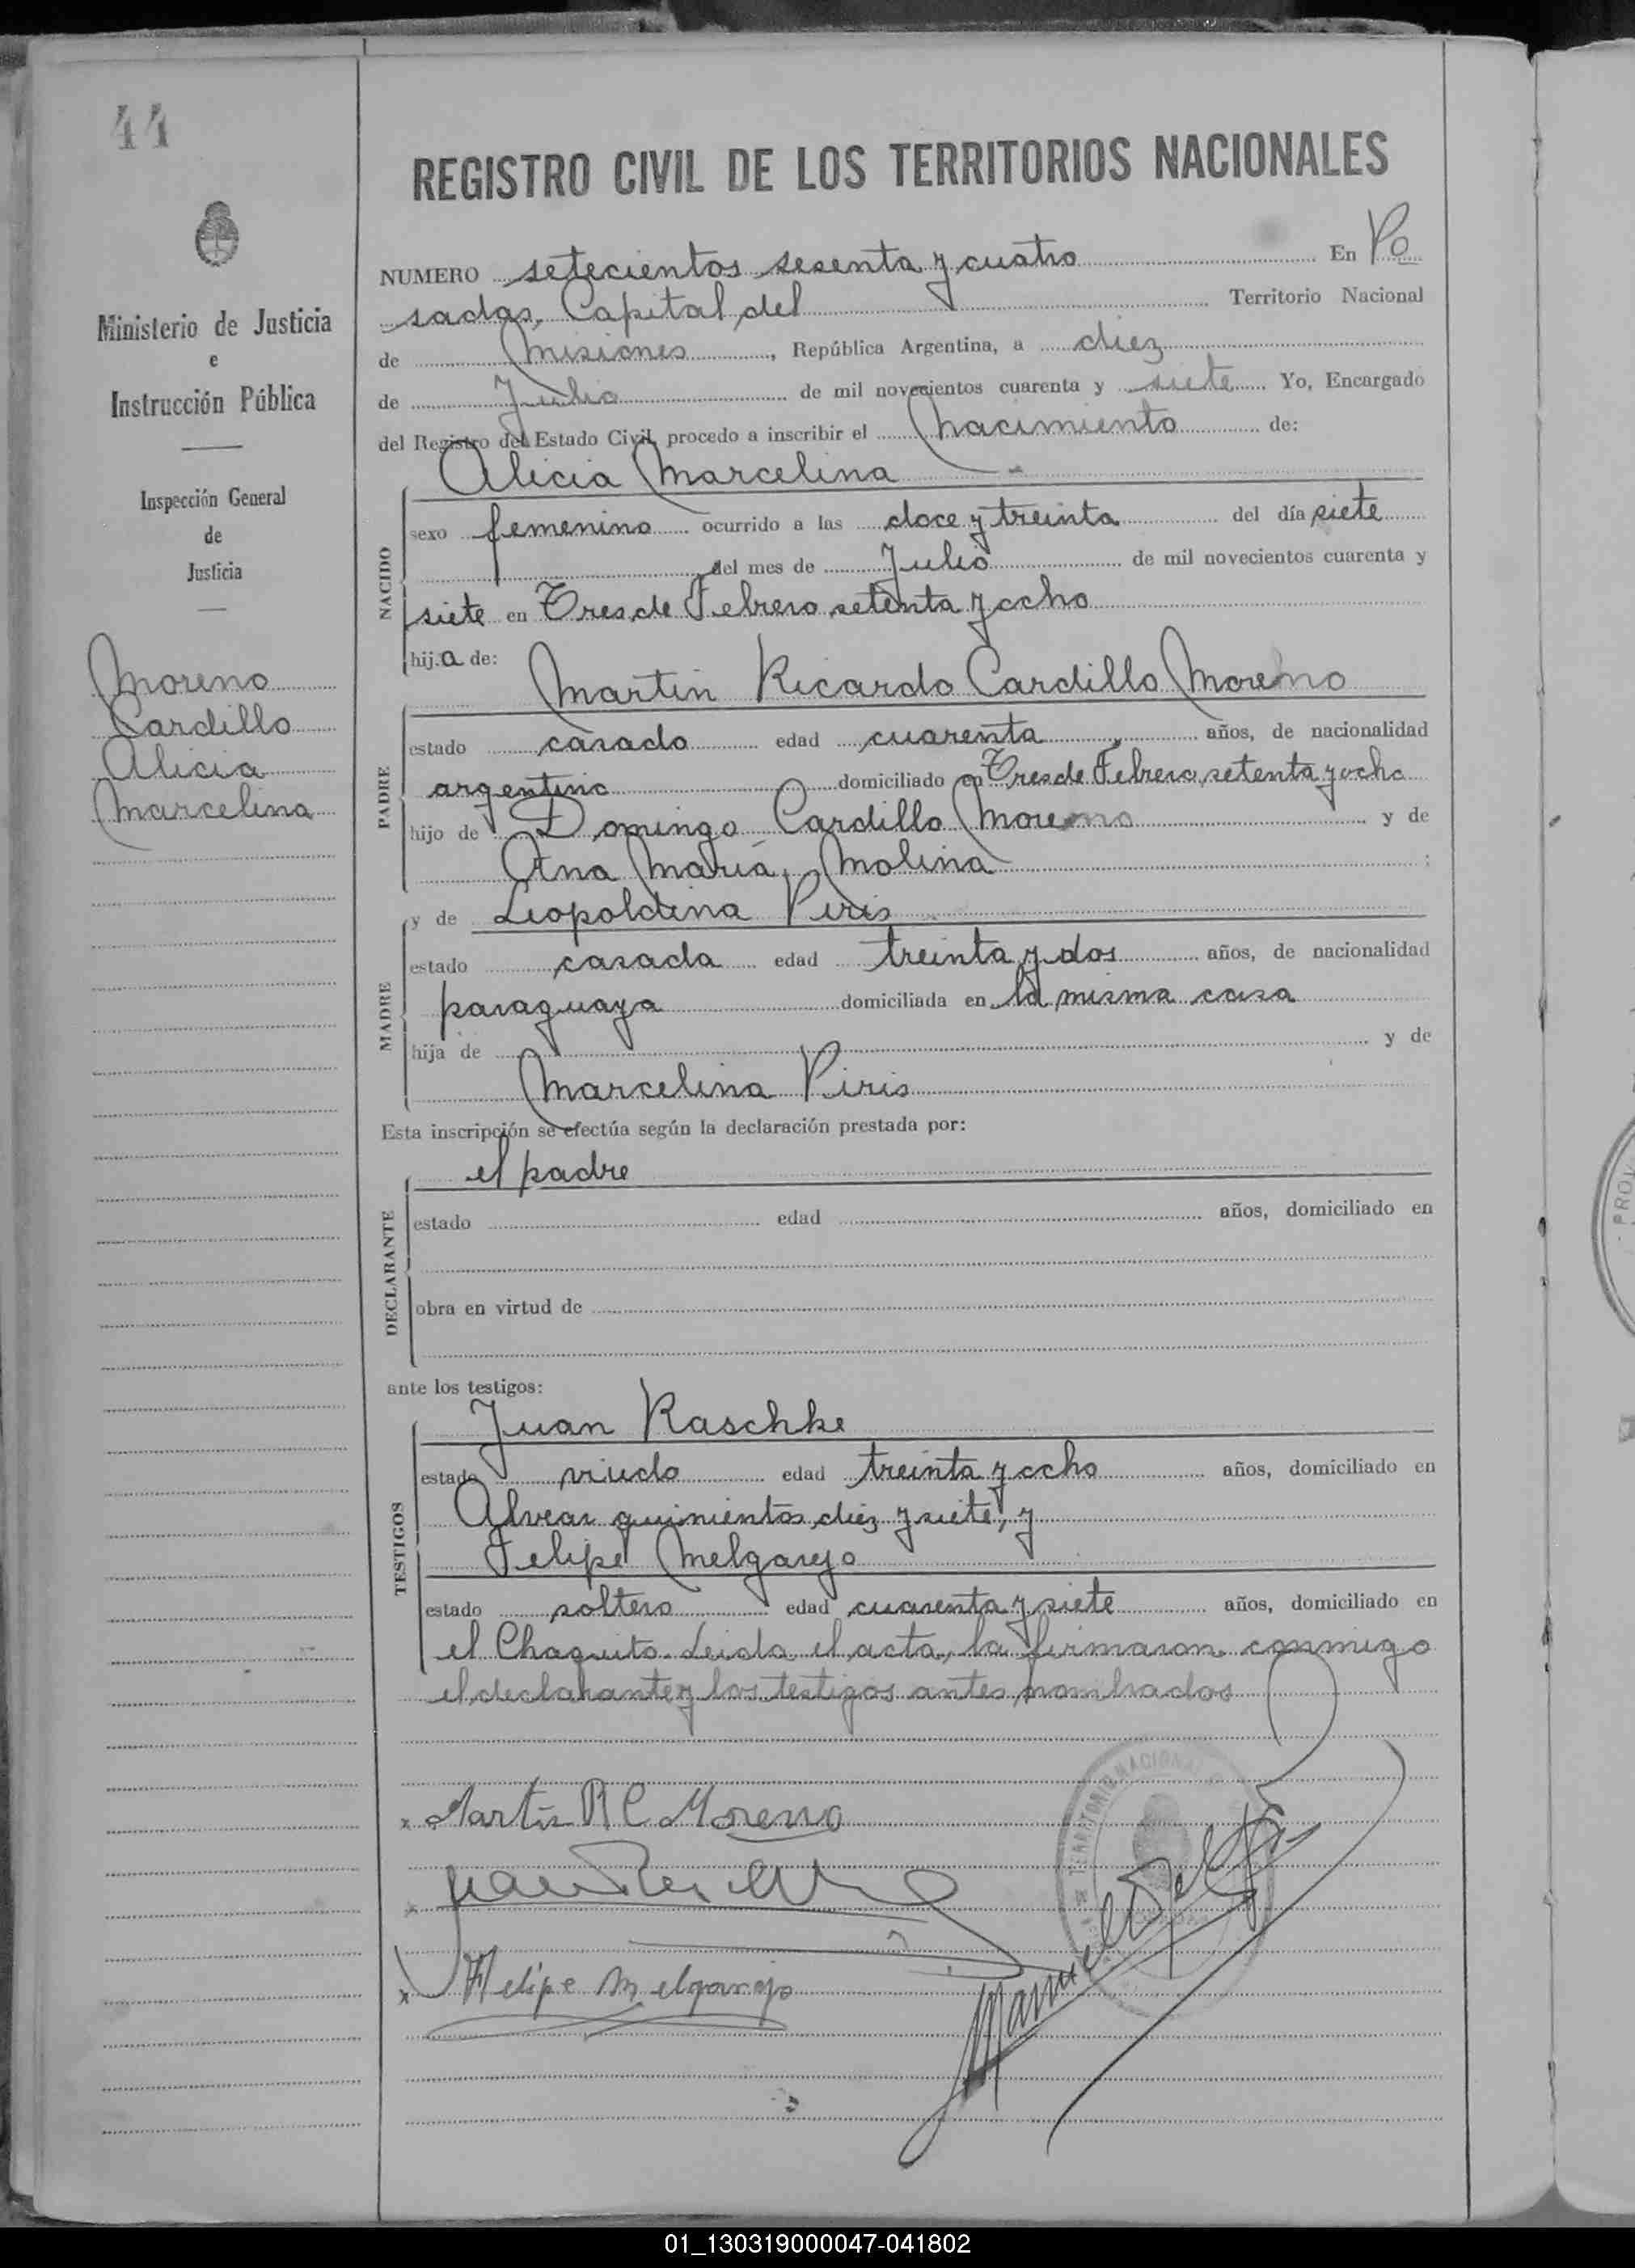 44
Ministerio de Justicia
e
Instrucción Pública
Inspección General
de
Justicia
Moreno
Cardillo
Alicia
Marcelina
REGISTRO CIVIL DE LOS TERRITORIOS NACIONALES
NUMERO setecientos sesenta y cuatro En Po
sadas, Capital del Territorio Nacional
de Misiones, República Argentina, a diez
de Julio de mil novecientos cuarenta y siete Yo, Encargado
del Registro del Estado Civil, procedo a inscribir el nacimiento de:
Alicia Marcelina -
NACIDO
sexo femenino ocurrido a las doce y treinta del día siete
del mes de Julio de mil novecientos cuarenta y
siete en Tres de Febrero setenta y ocho
hija de:
Martin Ricardo Cardillo Moreno
PADRE
estado casado edad cuarenta años, de nacionalidad
argentino domiciliado en Tres de Febrero, setenta y ocho
hijo de Domingo Cardillo Moreno y de
Ana María Molina ;
y de Leopoldina Piris
MADRE
estado casada edad treinta y dos años, de nacionalidad
paraguaya domiciliada en la misma casa
hija de y de
Marcelina Piris
Esta inscripción se efectúa según la declaración prestada por:
el padre
DECLARANTE
estado edad años, domiciliado en
obra en virtud de
ante los testigos:
Juan Raschke
TESTIGOS
estado viudo edad treinta y ocho años, domiciliado en
Alvear quinientos diez y siete, y
Felipe Melgarejo
estado soltero edad cuarenta y siete años, domiciliado en
el Chaquito. Leida el acta, la firmaron conmigo
el declarante y los testigos antes nombrados
x Martin R C Moreno
x
x Felipe Melgarejo
Manuel
TERRITORIO NACIONAL
PROV
01_130319000047-041802